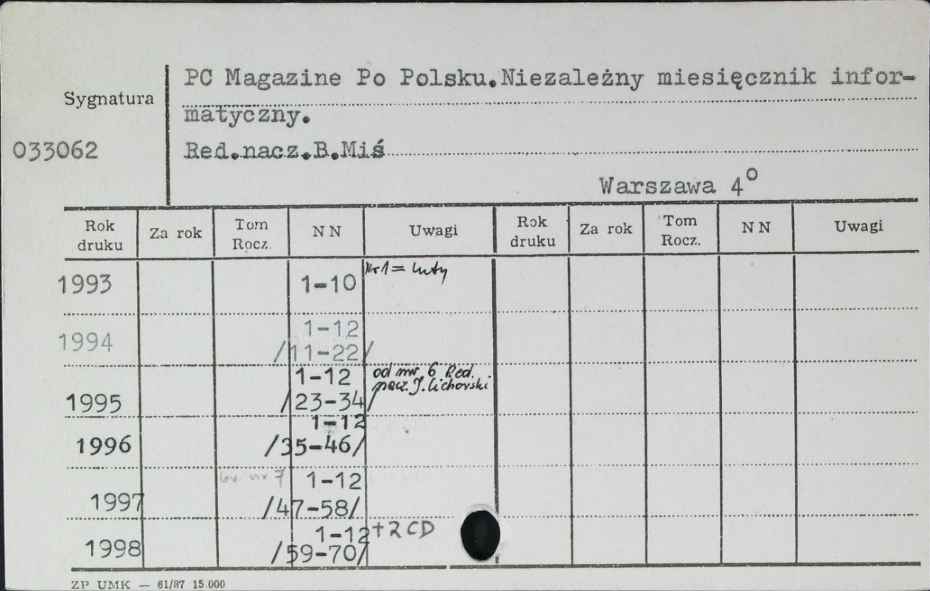 PC Magazine Po Polsku.Niezależny miesięcznik infor-
Sygnatura
matyczny.
033062
Red.nacz.B.Miś
Warszawa 4⁰
Rok druku Za rok Tom Rocz. NN Uwagi Rok druku Za rok Tom Rocz. NN Uwagi
1993 1-10 Nr 1 = luty
1994 1-12
/11-22/
1995 1-12 od nr 6 Red.
/23-34/ nacz. J. Cichorski
1996 1-12
/35-46/
nr 7 1-12
1997 /47-58/
1-12 + 2 CD
1998 /59-70/
ZP UMK — 61/87 15.000